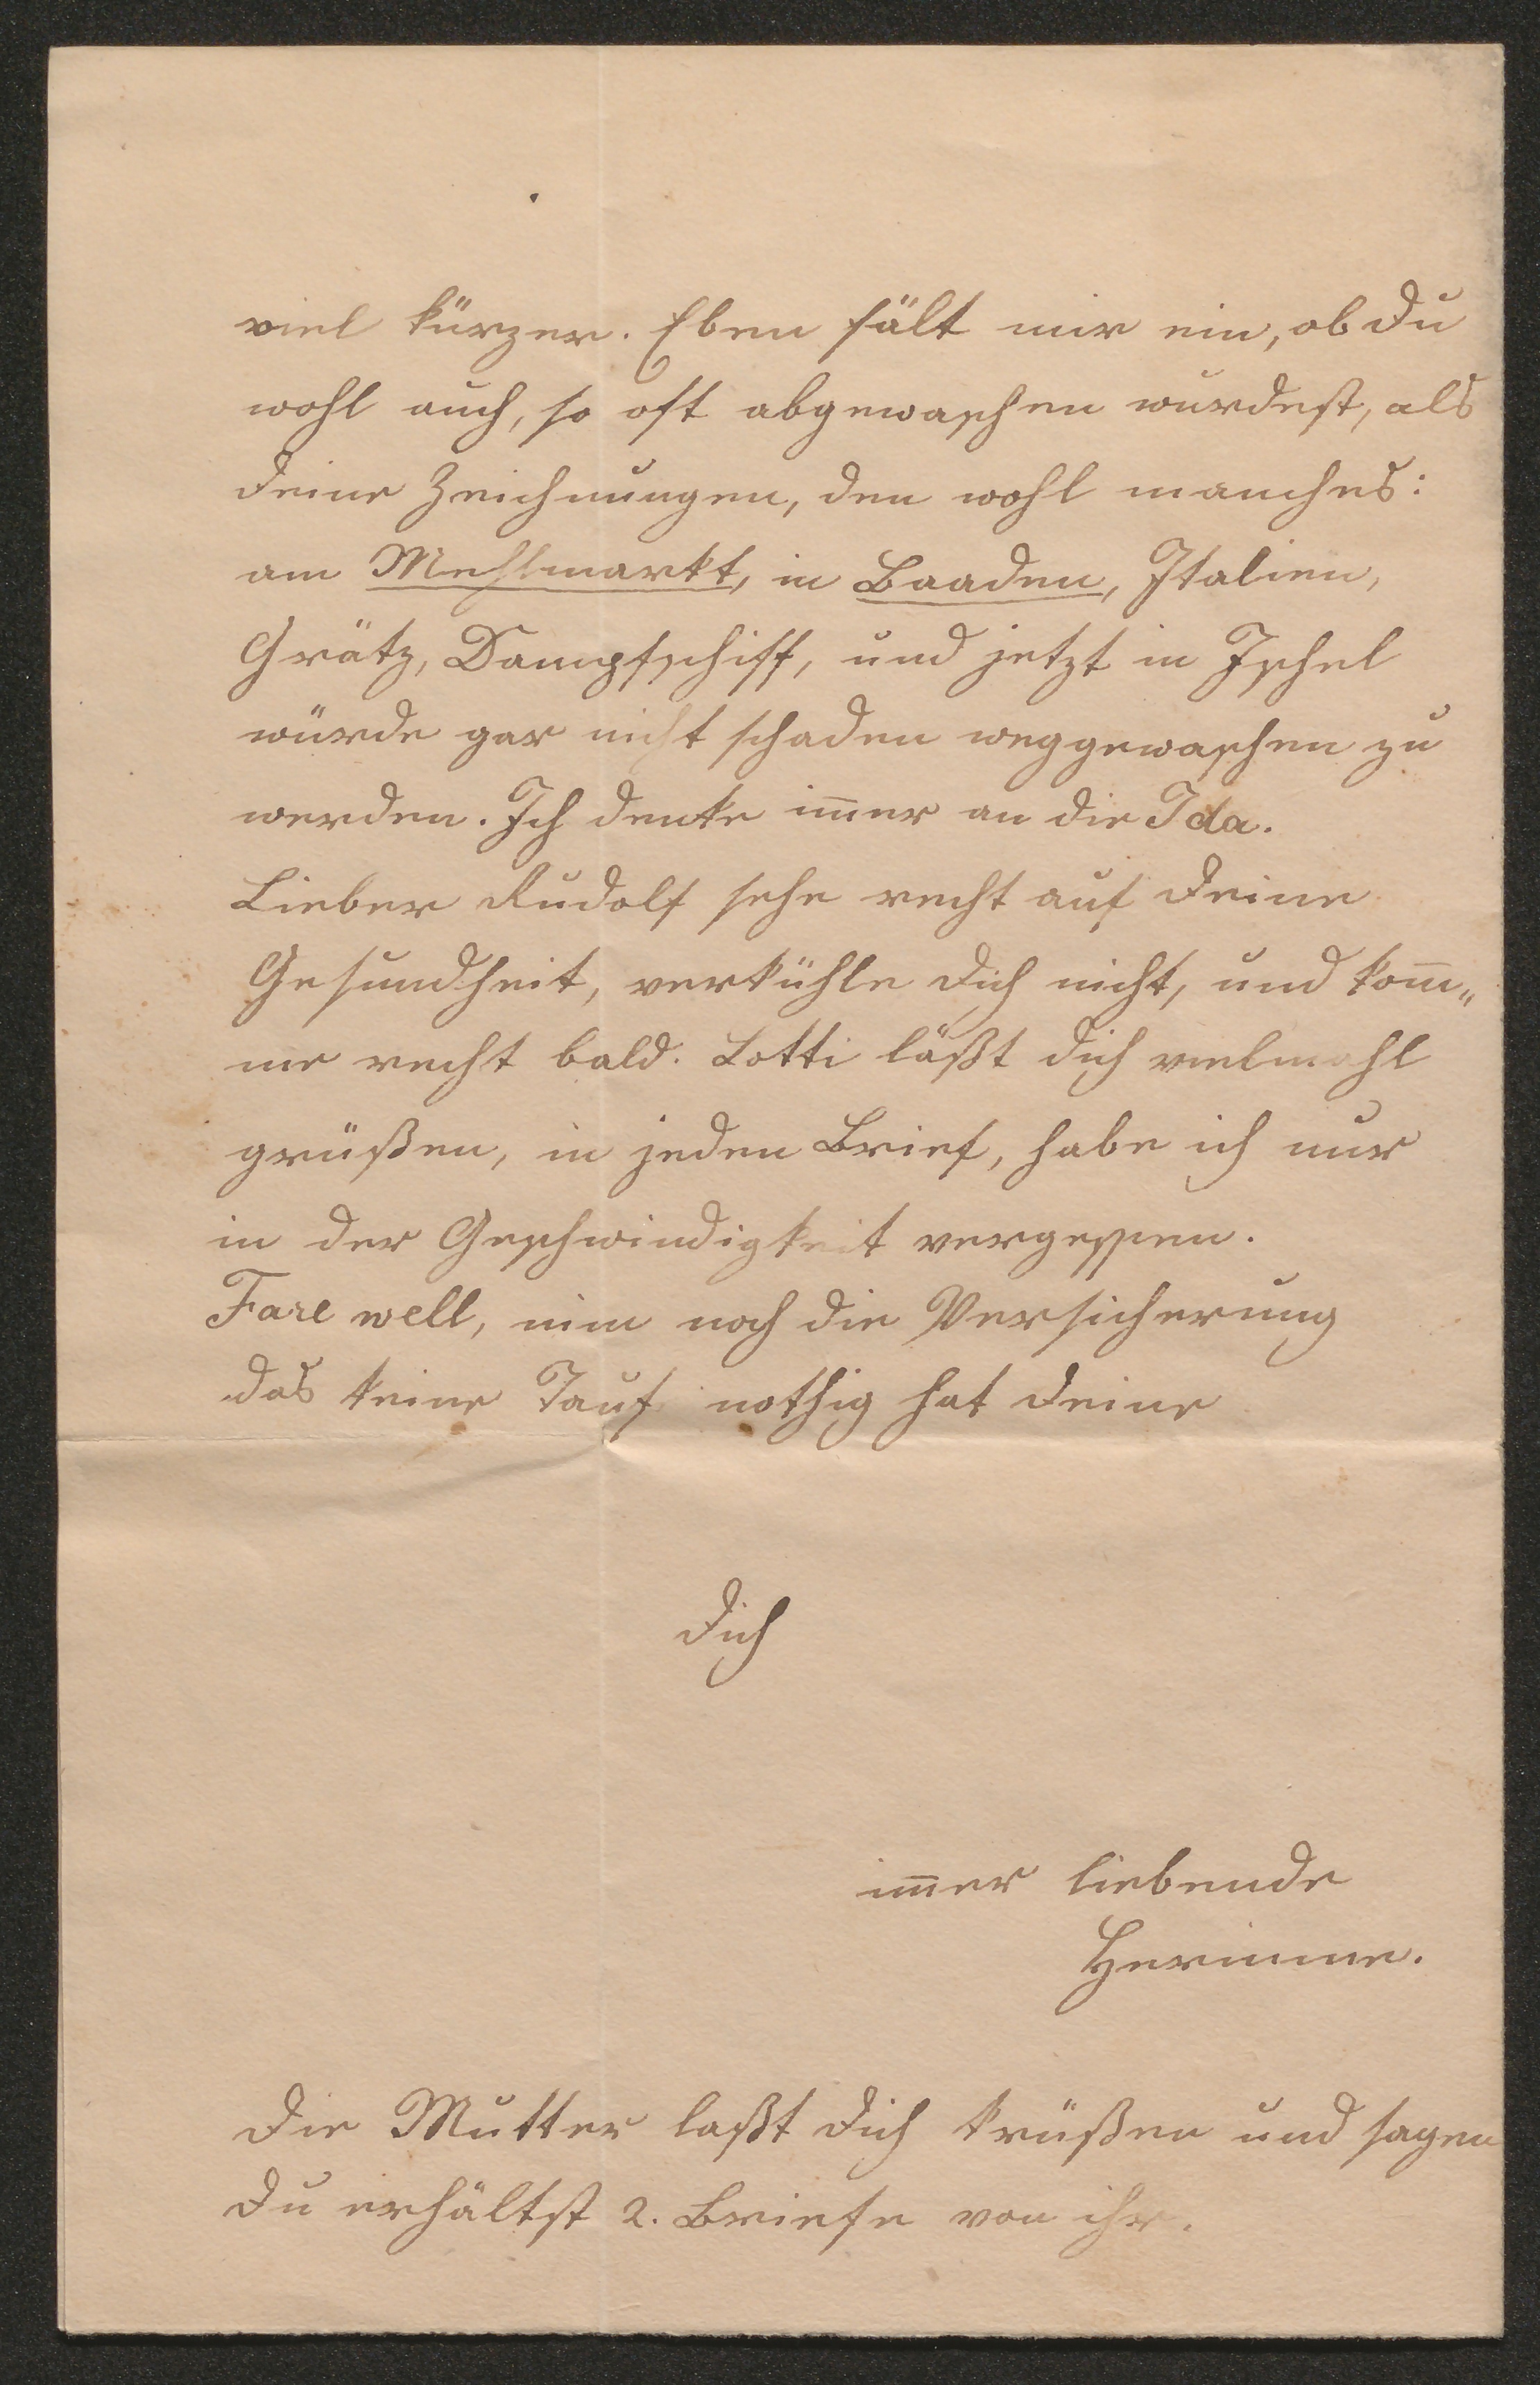 viel kürzer. Eben fält mir ein, ob du
wohl auch, so oft abgewaschen wurdest, als
deine Zeichnungen, den wohl manches:
am Mehlmarkt, in Baaden, Italien,
Grätz, Dampfschiff, und jetzt in Ischel
würde gar nicht schaden weggewaschen zu
werden. Ich denke im̄er an die Ida.
Lieber Rudolf sehe recht auf deine
Gesundheit, verkühle dich nicht, und kom̄„
me recht bald. Lotti läßt dich vielmahl
grüßen, in jeden Brief, habe ich nur
in der Geschwindigkeit vergessen.
Fare well, nim noch die Versicherung
das keine Tauf nothig hat deine
dich
im̄er liebende
Hermine.
Die Mutter laßt dich krüßen und sagen
du erhältst 2. Briefe von ihr.